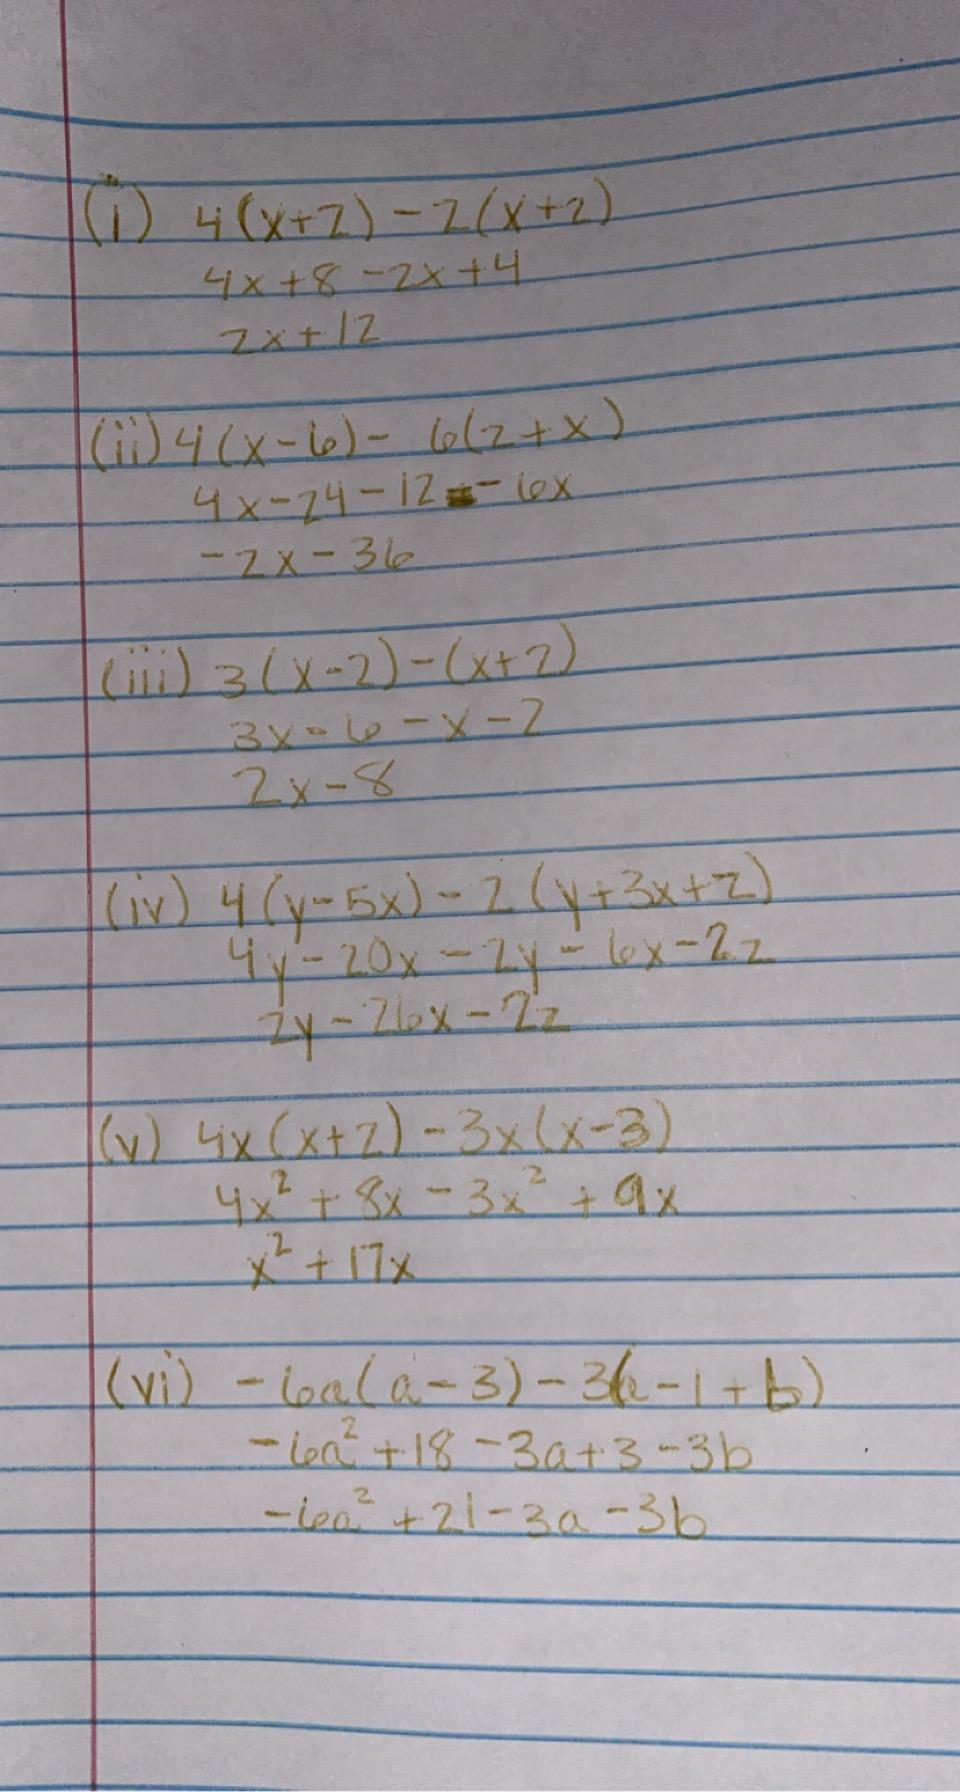 (i) 4(x+2) - 2(x+2)
4x+8 -2x+4
2x+12
(ii) 4(x-6) - 6(2+x)
4x-24-12 - 6x
-2x-36
(iii) 3(x-2)-(x+2)
3x-6-x-2
2x-8
(iv) 4(y-5x)-2(y+3x+z)
4y-20x-2y-6x-2z
2y-26x-2z
(v) 4x(x+2)-3x(x-3)
4x² + 8x - 3x² + 9x
x² + 17x
(vi) -6a(a-3)-3(a-1+b)
-6a² +18 -3a+3-3b
-6a² +21-3a-3b